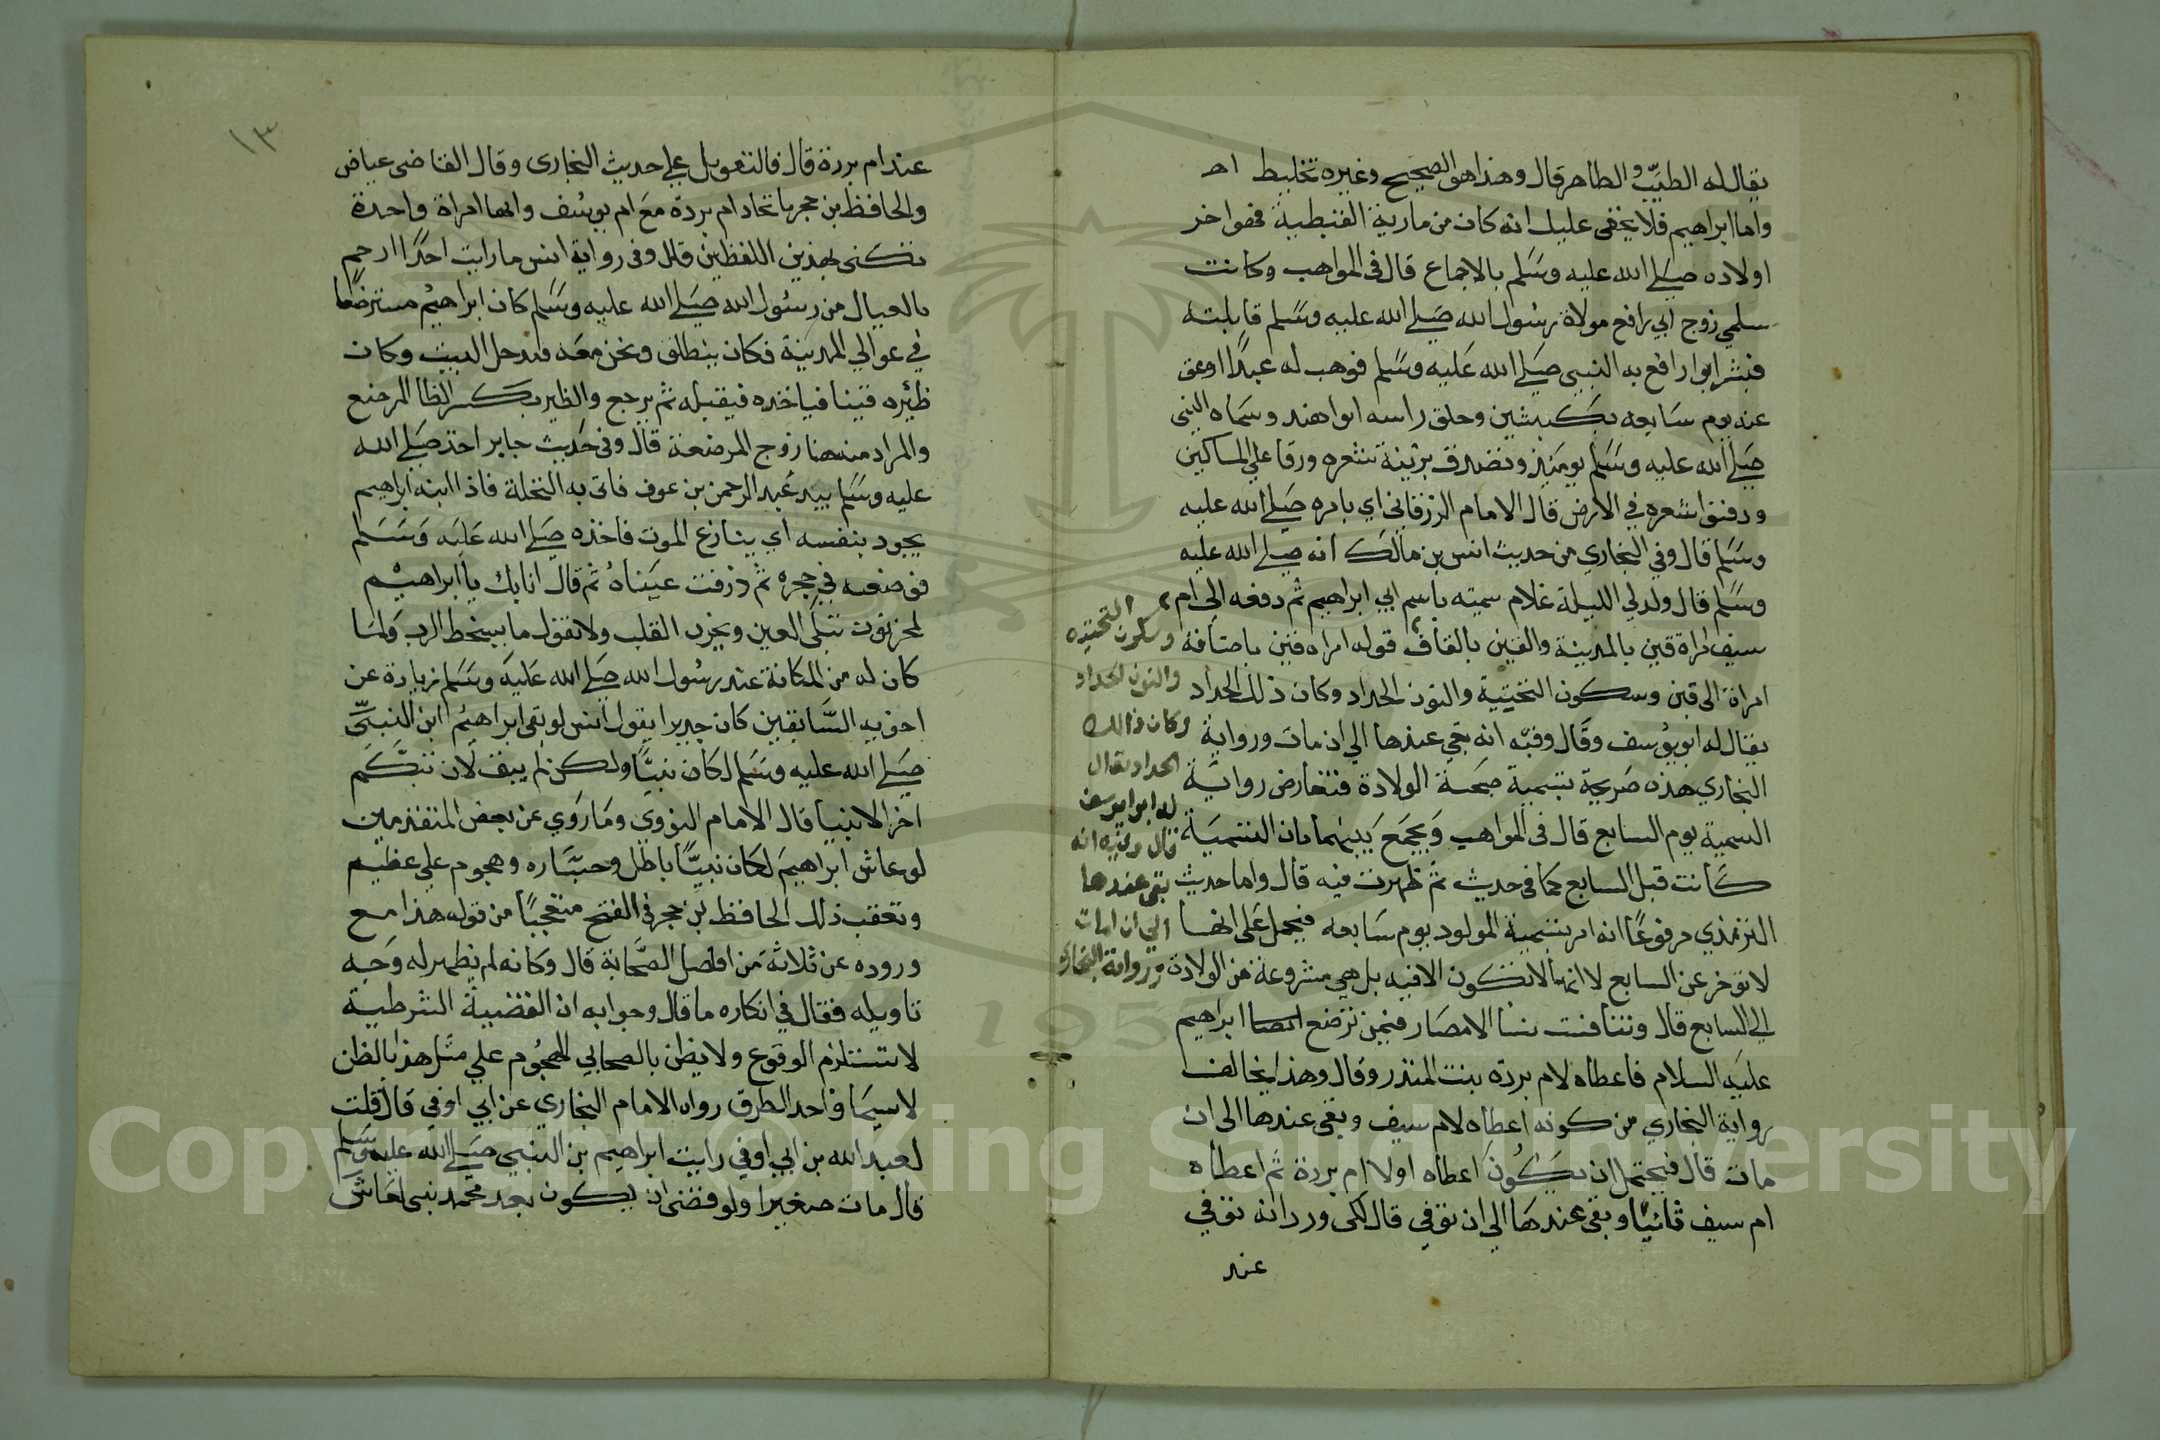 يقال له الطيب والطاهر قال وهذا هو الصحيح وغيره تخليط اه
واما ابراهيم فلا يخفى عليك انه كان من مارية القبطية فهو اخر
اولاده صلي الله عليه وسلم بالاجماع قال في المواهب وكانت
سلمي زوج ابي رافع مولاة رسول الله صلي الله عليه وسلم قابلته
فبشر ابو رافع به النبي صلي الله عليه وسلم فوهب له عبدا وعق
عنه يوم سابعه بكبشين وحلق راسه ابو هند وسماه النبي
صلي الله عليه وسلم يومئذ وتصدق بزنة شعره ورقا علي المساكين
ودفنوا شعره في الارض قال الامام الزرقاني اي بامره صلي الله عليه
وسلم قال وفي البخاري من حديث انس بن مالك انه صلي الله عليه
وسلم قال ولد لي الليلة غلام سميته باسم ابي ابراهيم ثم دفعه الي ام
سيف امراة قين بالمدينة والقين بالقاف قوله امراه قين باضافة
امراة الى قين وسكون التحتية والنون الحداد وكان ذلك الحداد
يقال له ابو يوسف وقال وفيه انه بقي عندها الي ان مات ورواية
البخاري هذه صريحة بتسمية صبحة الولادة فتعارض رواية
التسمية يوم السابع قال في المواهب ويجمع بينهما بان التسمية
كانت قبل السابع كما في حديث ثم ظهرت فيه قال واما حديث
الترمذي مرفوعا انه امر بتسمية المولود يوم سابعه فيحمل على انها
لا تؤخر عن السابع لا انها لا تكون الا فيه بل هي مشروعة من الولادة
الي السابع قال وتنافست نسا الامصار فيمن ترضع ابراهيم
عليه السلام فاعطاه لام بردة بنت المنذر وقال وهذا يخالف
رواية البخاري من كونه اعطاه لام سيف وبقى عندها الى ان
مات قال فيحتمل ان يكون اعطاه اولا ام بردة ثم اعطاه
ام سيف ثانيا وبقى عندها الي ان توفي قال لكن ورد انه توفي
عند
وسكون التحتيه
والنون الحداد
وكان ذالك
الحداد يقال
له ابو ايوسف
قال وفيه انه
بقى عندها
الي ان امات
ورواية البخارى
١٣
عند ام بردة قال فالتعويل على حديث البخارى وقال القاضى عياض
والحافظ بن حجر باتحاد ام بردة مع ام يوسف وانها امراة واحدة
تكنى بهذين اللفظين قال وفى رواية انس ما رايت احدا ارحم
بالعيال من رسول الله صلي الله عليه وسلم كان ابراهيم مسترضعا
في عوالي المدينة فكان ينطلق ونحن معه فيدخل البيت وكان
ظئره قينا فياخذه فيقبله ثم يرجع والظير بكسر الظا المرضع
والمراد منه هنا زوج المرضعة قال وفي حديث جابر اخذ صلي الله
عليه وسلم بيد عبد الرحمن بن عوف فاتى به النخلة فاذا ابنه ابراهيم
يجود بنفسه اي ينازع الموت فاخذه صلي الله عليه وسلم
فوضعه في حجره ثم ذرفت عيناه ثم قال انا بك يا ابراهيم
لمحزنون تبكي العين ويحزن القلب ولا تقول ما يسخط الرب ولما
كان له من المكانة عند رسول الله صلي الله عليه وسلم زيادة عن
اخويه السابقين كان جديرا يقول انس لو بقى ابراهيم ابن النبي
صلي الله عليه وسلم لكان نبيا ولكن لم يبق لان نبيكم
اخر الانبيا قال الامام النووي وما روي عن بعض المتقدمين
لو عاش ابراهيم لكان نبيا باطل وجسارة وهجوم علي عظيم
وتعقب ذلك الحافظ بن حجر في الفتح متعجبا من قوله هذا مع
وروده عن ثلاثة من افاضل الصحابة قال وكانه لم يظهر له وجه
تاويله فقال في انكاره ما قال وجوابه ان القضية الشرطية
لا تستلزم الوقوع ولا يظن بالصحابي الهجوم علي مثل هذا بالظن
لاسيما واحد الطرق رواه الامام البخاري عن ابي اوفي قال قلت
لعبد الله بن ابي اوفي رايت ابراهيم بن النبي صلي الله عليه وسلم
قال مات صغيرا ولو قضى ان يكون بعد محمد نبي لعاش
Copyright © King Saud University
195